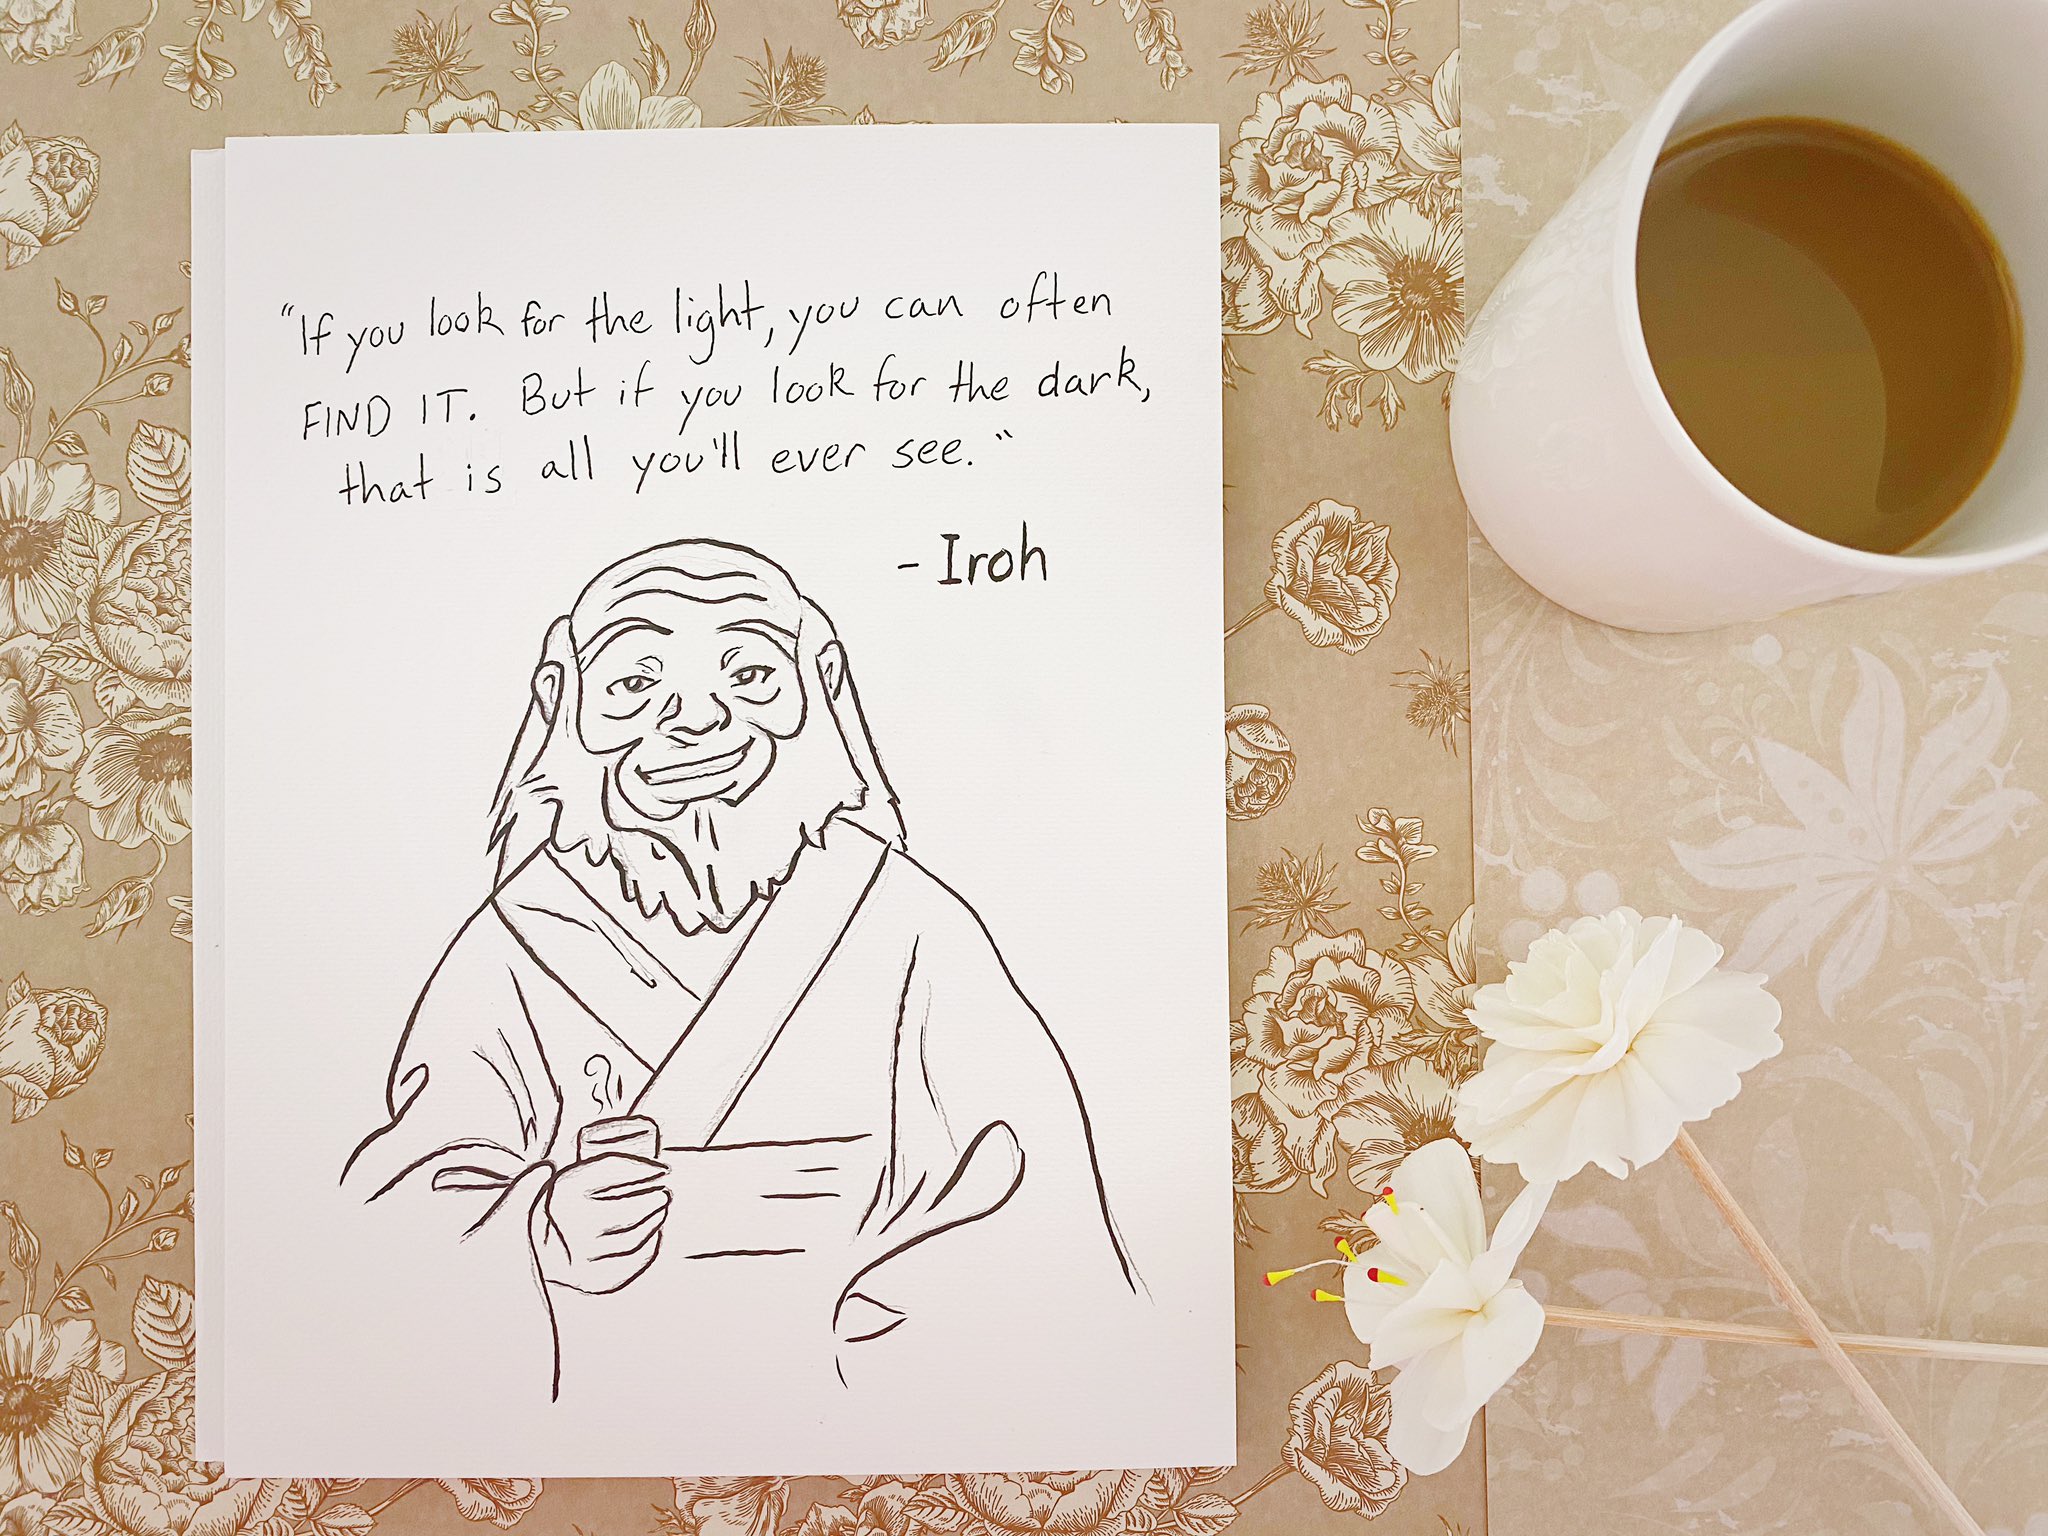 "If you look for the light, you can often
FIND IT. But if you look for the dark,
that is all you'll ever see."
- Iroh